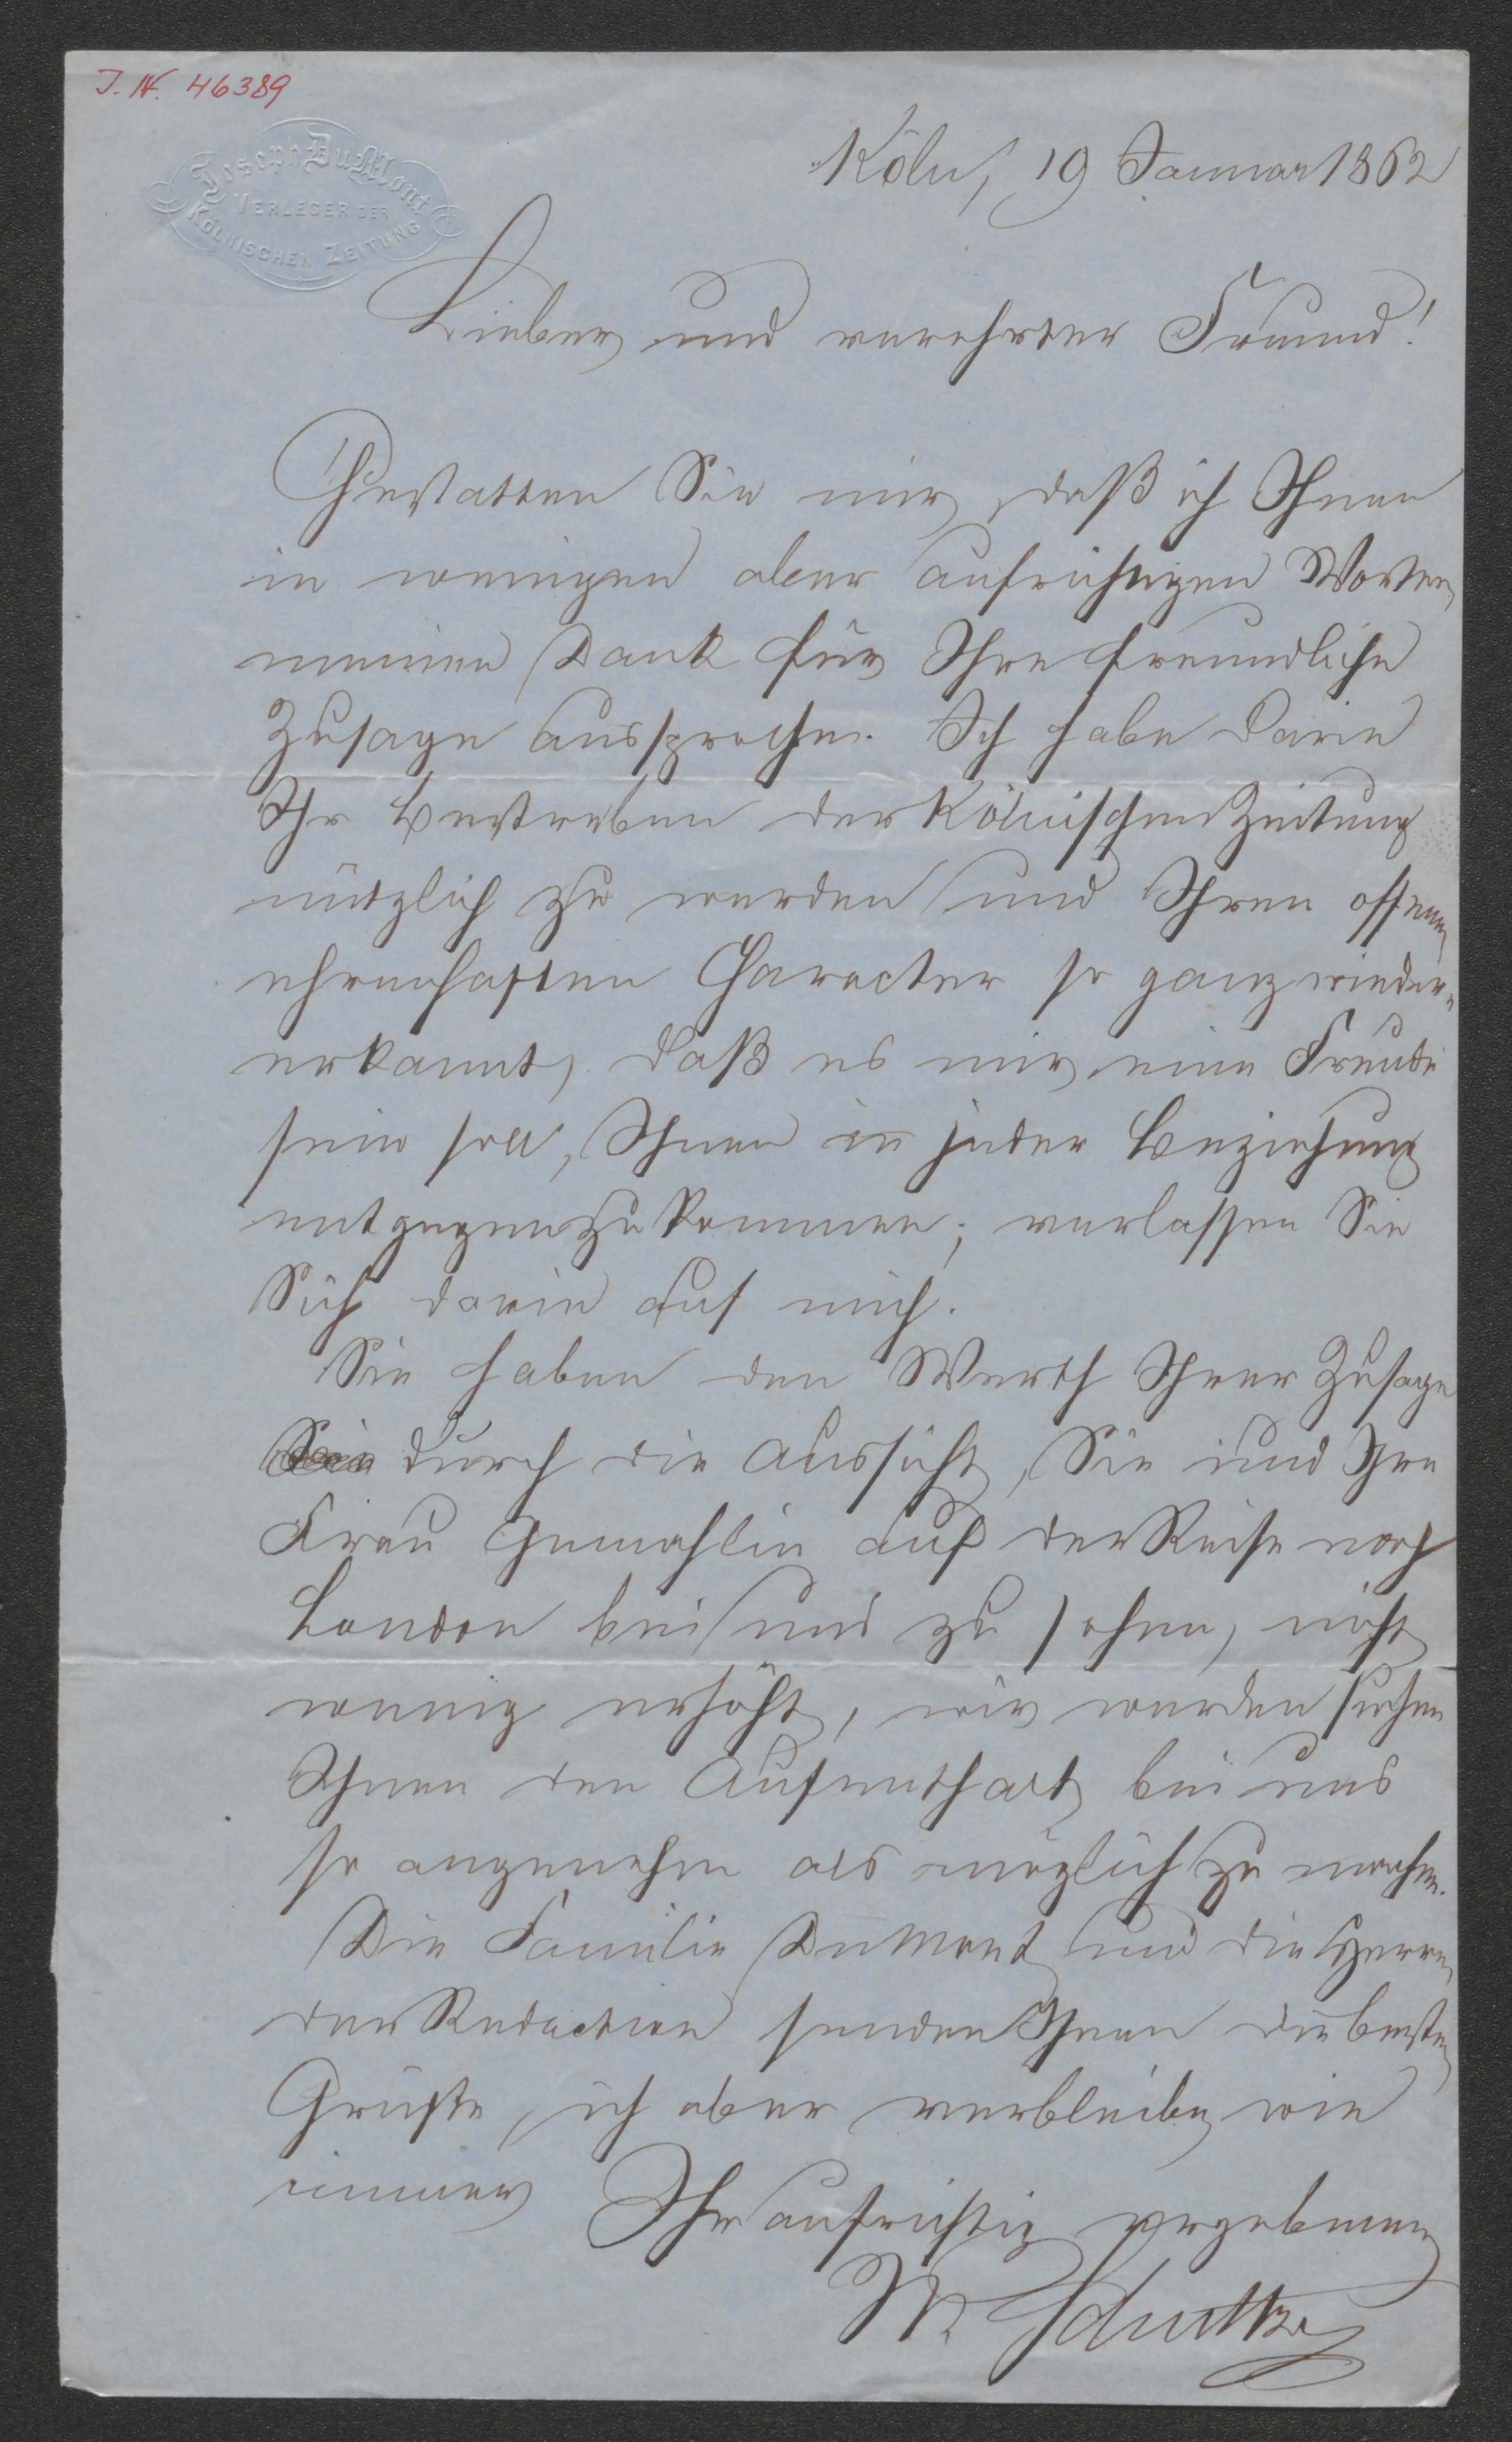 J. N. 46389
Joseph DuMont
VERLEGER DER
KÖLNISCHEN ZEITUNG
Köln, 19 Januar 1862
Lieber und verehrter Freund!
Gestatten Sie mir, daß ich Ihnen
in wenigen aber aufrichtigen Worten
meinen Dank für Ihre freundliche
Zusage ausspreche. Ich habe darin
Ihr Bestreben der Kölnischen Zeitung
nützlich zu werden und Ihren offenen
ehrenhaften Character so ganz wieder-
erkannt, daß es mir eine Freude
sein soll, Ihnen in jeder Beziehung
entgegenzukommen; verlassen Sie
Sich darin auf mich.
Sie haben den Werth Ihrer Zusage
durch die Aussicht, Sie und Ihre
Frau Gemahlin auf der Reise nach
London bei uns zu sehen, nicht
wenig erhöht, wir werden suchen
Ihnen den Aufenthalt bei uns
so angenehm als möglich zu machen.
Die Familie DuMont und die Herren
der Redaction senden Ihnen die besten
Grüße, ich aber verbleibe wie
immer Ihr aufrichtig ergebener
W. Schultze